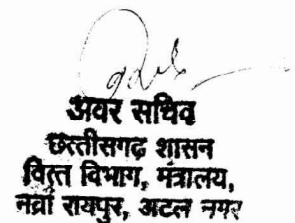 अवर सचिव
छत्तीसगढ़ शासन
वित्त विभाग, मंत्रालय,
नवा रायपुर, अटल नगर